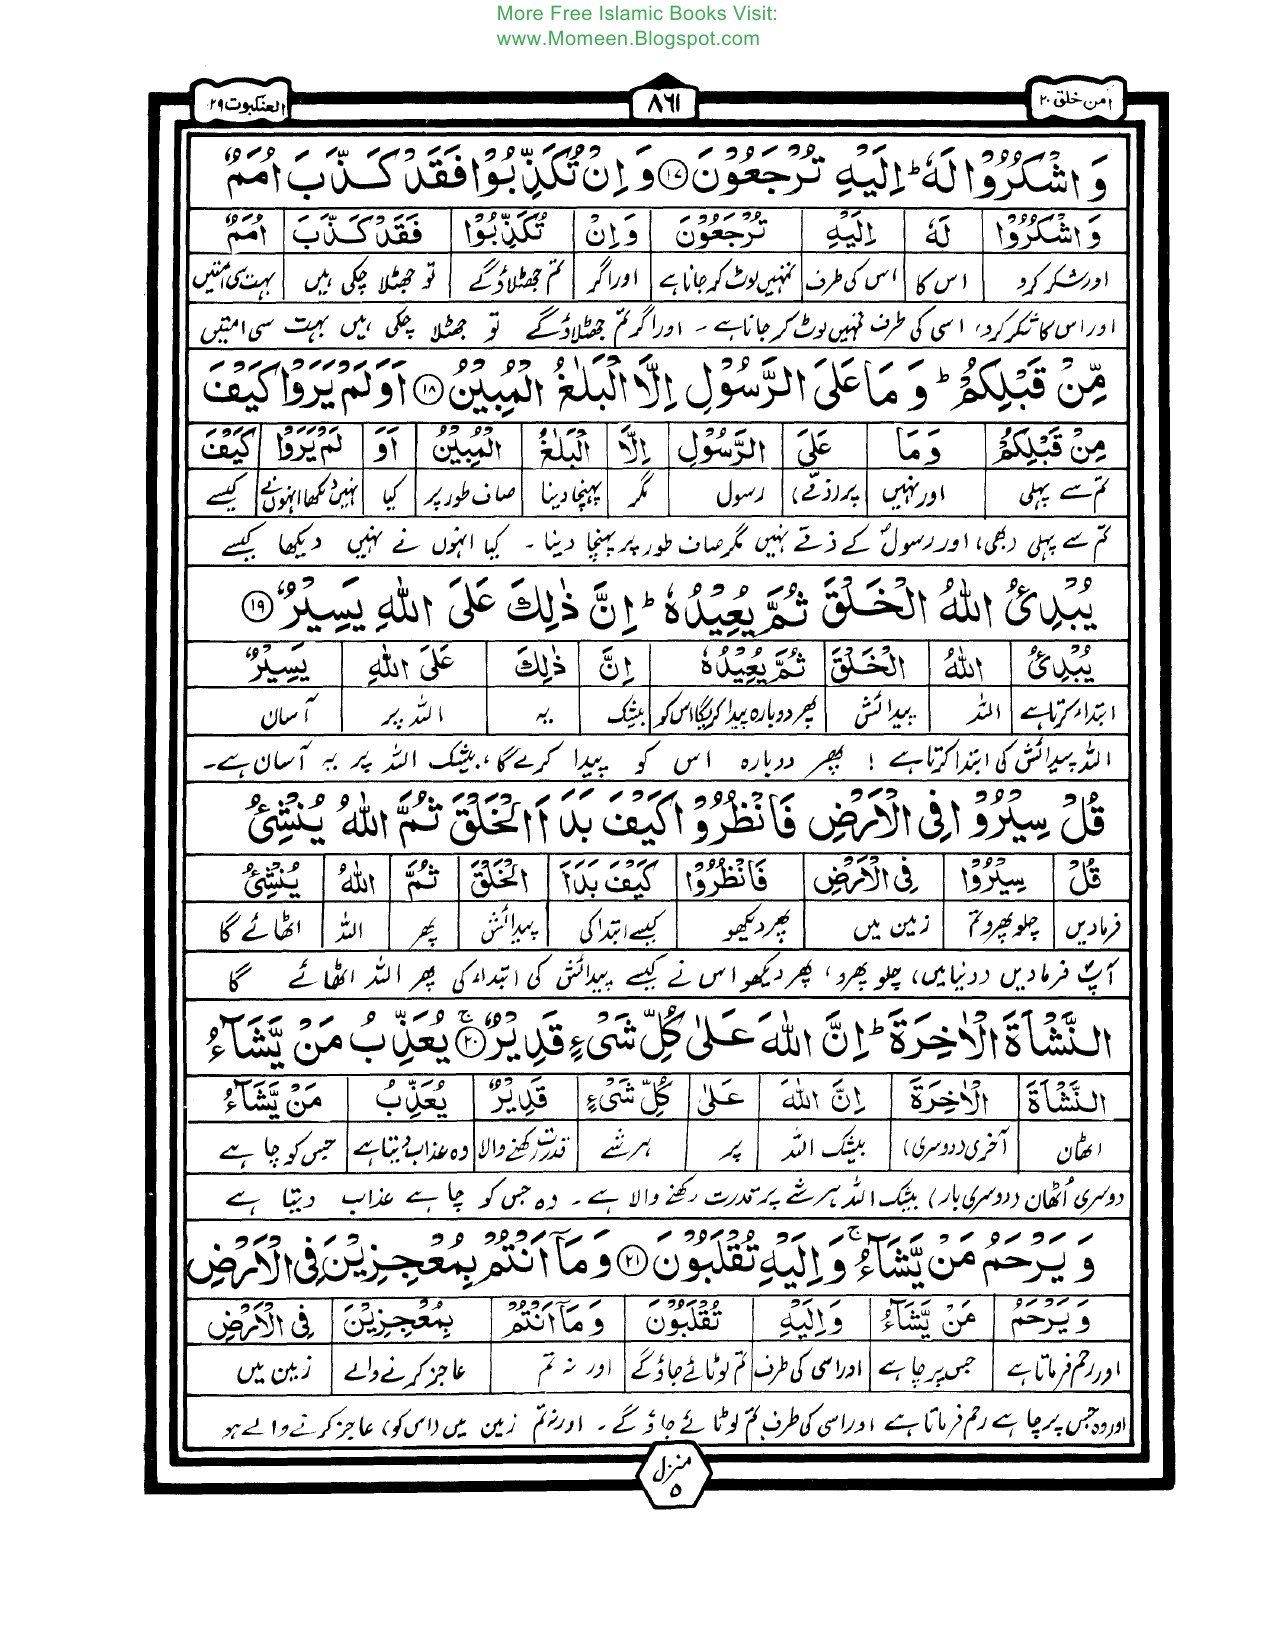 More Free Islamic Books Visit:
www.Momeen.Blogspot.com
امن خلق ۲۰
۸۶۱
العنکبوت ۲۹
وَاشْكُرُوْا لَهٗ ؕ اِلَيْهِ تُرْجَعُوْنَ ۝۱۷ وَاِنْ تُكَذِّبُوْا فَقَدْ كَذَّبَ اُمَمٌ
وَاشْكُرُوْا لَهٗ اِلَيْهِ تُرْجَعُوْنَ وَاِنْ تُكَذِّبُوْا فَقَدْ كَذَّبَ اُمَمٌ
اور شکر کرو اس کا اس کی طرف تمہیں لوٹ کر جانا ہے اور اگر تم جھٹلاؤ گے تو جھٹلا چکی ہیں بہت سی امتیں
اور اس کا شکر کرو، اسی کی طرف تمہیں لوٹ کر جانا ہے۔ اور اگر تم جھٹلاؤ گے تو جھٹلا چکی ہیں بہت سی امتیں
مِّنْ قَبْلِكُمْ ؕ وَمَا عَلَى الرَّسُوْلِ اِلَّا الْبَلٰغُ الْمُبِيْنُ ۝۱۸ اَوَلَمْ يَرَوْا كَيْفَ
مِنْ قَبْلِكُمْ وَمَا عَلَى الرَّسُوْلِ اِلَّا الْبَلٰغُ الْمُبِيْنُ اَوَ لَمْ يَرَوْا كَيْفَ
تم سے پہلی اور نہیں پر (ذمّے) رسول مگر پہنچا دینا صاف طور پر کیا نہیں دیکھا انہوں نے کیسے
تم سے پہلی (بھی)، اور رسولؐ کے ذمّے نہیں مگر صاف طور پر پہنچا دینا۔ کیا انہوں نے نہیں دیکھا کیسے
يُبْدِئُ اللّٰهُ الْخَلْقَ ثُمَّ يُعِيْدُهٗ ؕ اِنَّ ذٰلِكَ عَلَى اللّٰهِ يَسِيْرٌ ۝۱۹
يُبْدِئُ اللّٰهُ الْخَلْقَ ثُمَّ يُعِيْدُهٗ اِنَّ ذٰلِكَ عَلَى اللّٰهِ يَسِيْرٌ
ابتداء کرتا ہے اللہ پیدائش پھر دوبارہ پیدا کریگا اس کو بیشک یہ اللہ پر آسان
اللہ پیدائش کی ابتدا کرتا ہے! پھر دوبارہ اس کو پیدا کرے گا، بیشک اللہ پر یہ آسان ہے۔
قُلْ سِيْرُوْا فِى الْاَرْضِ فَانْظُرُوْا كَيْفَ بَدَاَ الْخَلْقَ ثُمَّ اللّٰهُ يُنْشِئُ
قُلْ سِيْرُوْا فِى الْاَرْضِ فَانْظُرُوْا كَيْفَ بَدَاَ الْخَلْقَ ثُمَّ اللّٰهُ يُنْشِئُ
فرمادیں چلو پھرو تم زمین میں پھر دیکھو کیسے ابتدا کی پیدائش پھر اللہ اٹھائے گا
آپؐ فرمادیں (دنیا میں) چلو پھرو، پھر دیکھو اس نے کیسے پیدائش کی ابتداء کی پھر اللہ اٹھائے گا
النَّشْاَةَ الْاٰخِرَةَ ؕ اِنَّ اللّٰهَ عَلٰى كُلِّ شَىْءٍ قَدِيْرٌ ۚ۝۲۰ يُعَذِّبُ مَنْ يَّشَآءُ
النَّشْاَةَ الْاٰخِرَةَ اِنَّ اللّٰهَ عَلٰى كُلِّ شَىْءٍ قَدِيْرٌ يُعَذِّبُ مَنْ يَّشَآءُ
اٹھان آخری (دوسری) بیشک اللہ پر ہر شے قدرت رکھنے والا وہ عذاب دیتا ہے جس کو چاہے
دوسری اُٹھان (دوسری بار) بیشک اللہ ہر شے پر قدرت رکھنے والا ہے۔ وہ جس کو چاہے عذاب دیتا ہے
وَيَرْحَمُ مَنْ يَّشَآءُ ۚ وَاِلَيْهِ تُقْلَبُوْنَ ۝۲۱ وَمَآ اَنْتُمْ بِمُعْجِزِيْنَ فِى الْاَرْضِ
وَيَرْحَمُ مَنْ يَّشَآءُ وَاِلَيْهِ تُقْلَبُوْنَ وَمَآ اَنْتُمْ بِمُعْجِزِيْنَ فِى الْاَرْضِ
اور رحم فرماتا ہے جس پر چاہے اور اسی کی طرف تم لوٹائے جاؤ گے اور نہ تم عاجز کرنے والے زمین میں
اور وہ جس پر چاہے رحم فرماتا ہے اور اسی کی طرف تم لوٹائے جاؤ گے۔ اور نہ تم زمین میں (اس کو) عاجز کرنے والے ہو
منزل
۵